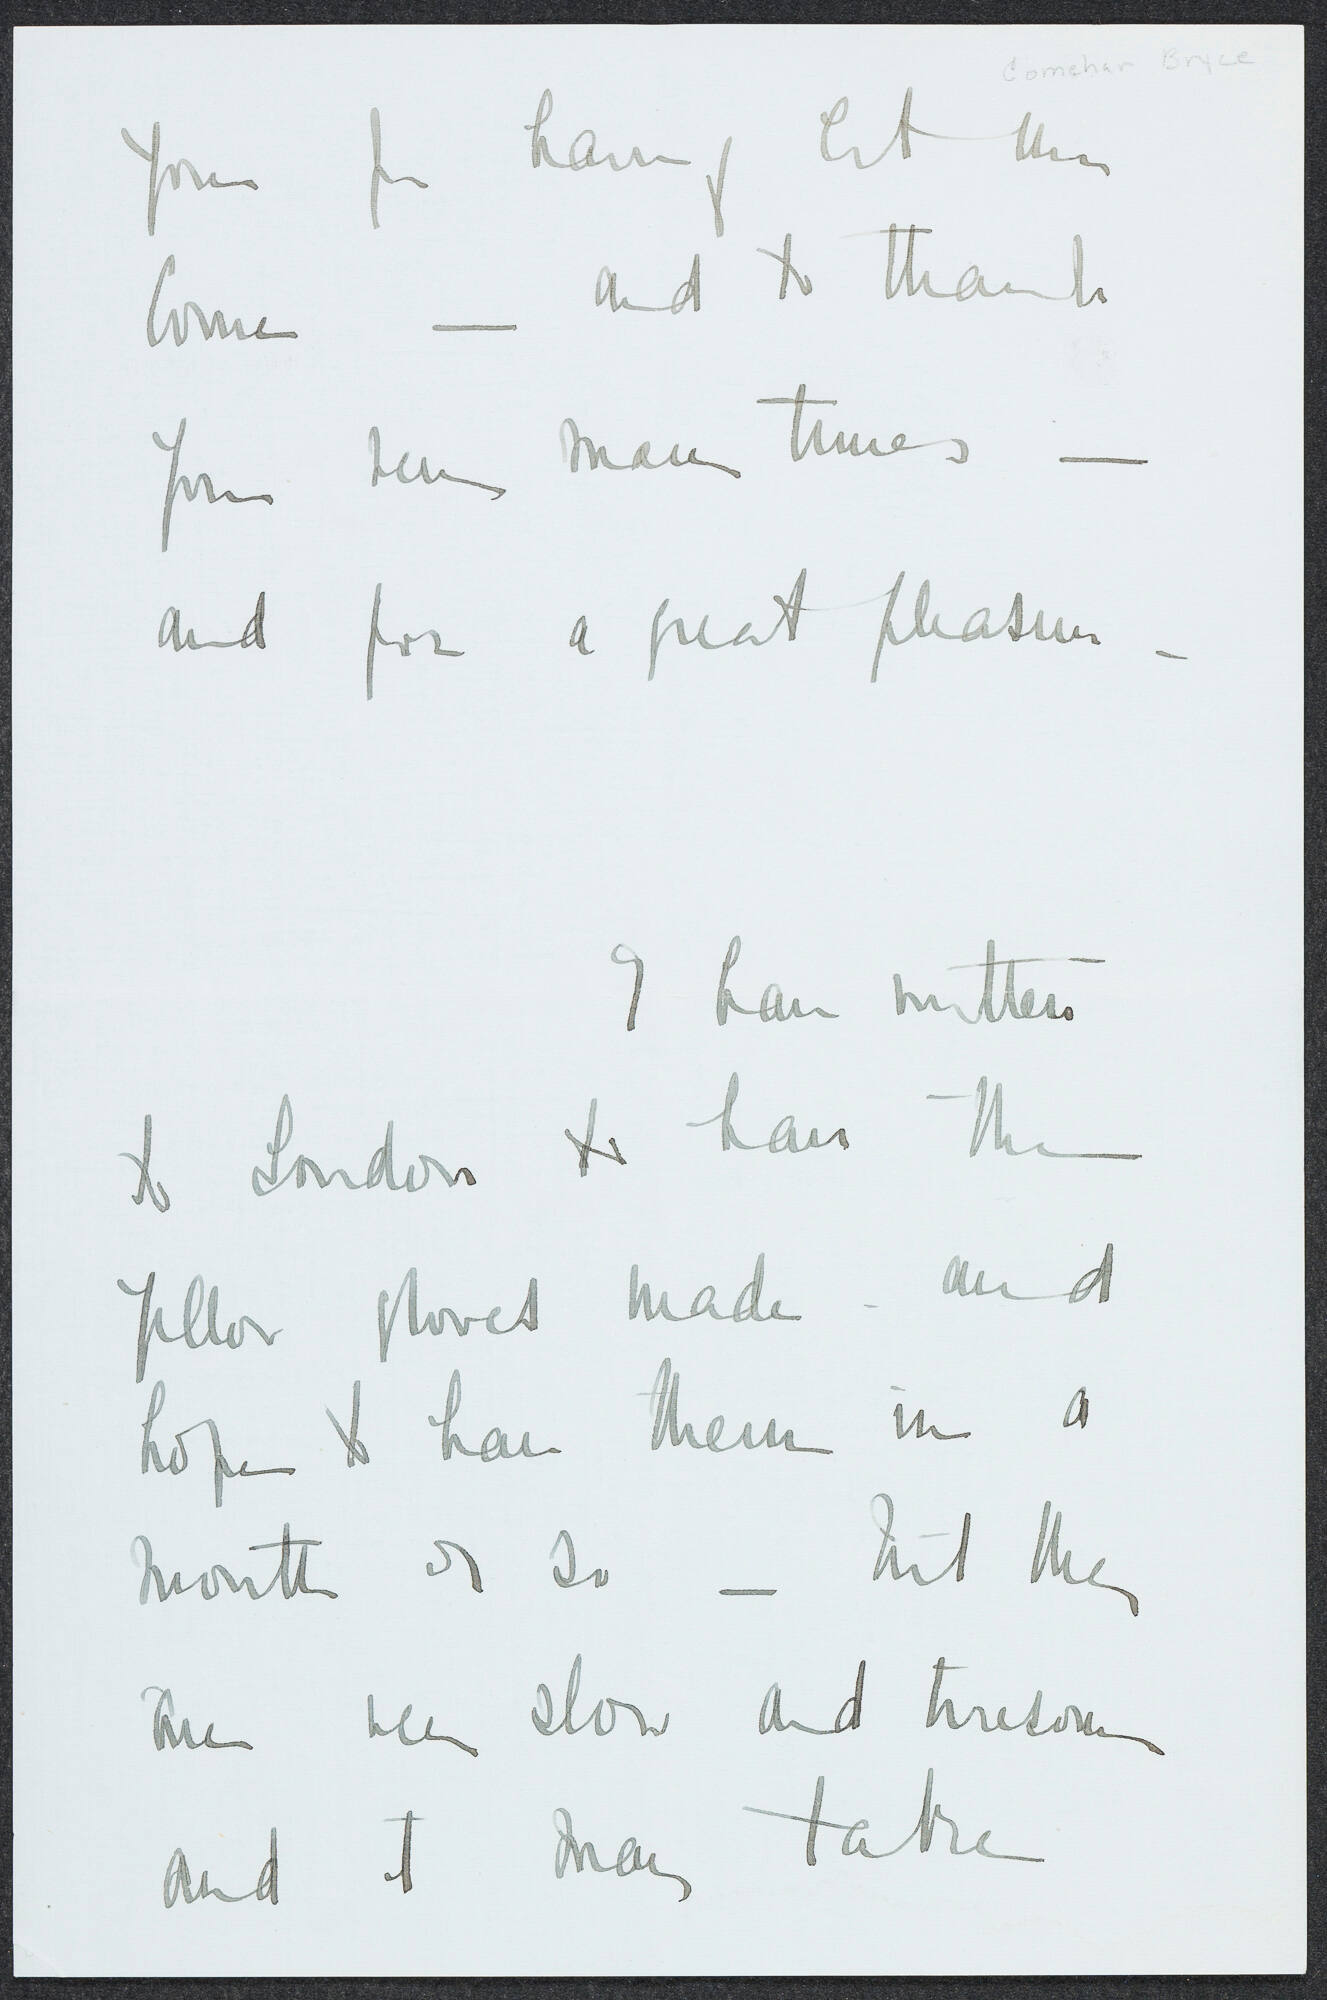 Comehar Bryce
you for having let them
come — and to thank
you very many times —
and for a great pleasure -
I have written
to London to have the
yellow gloves made - and
hope to have them in a
month or so — but they
are very slow and tiresome
and it may take